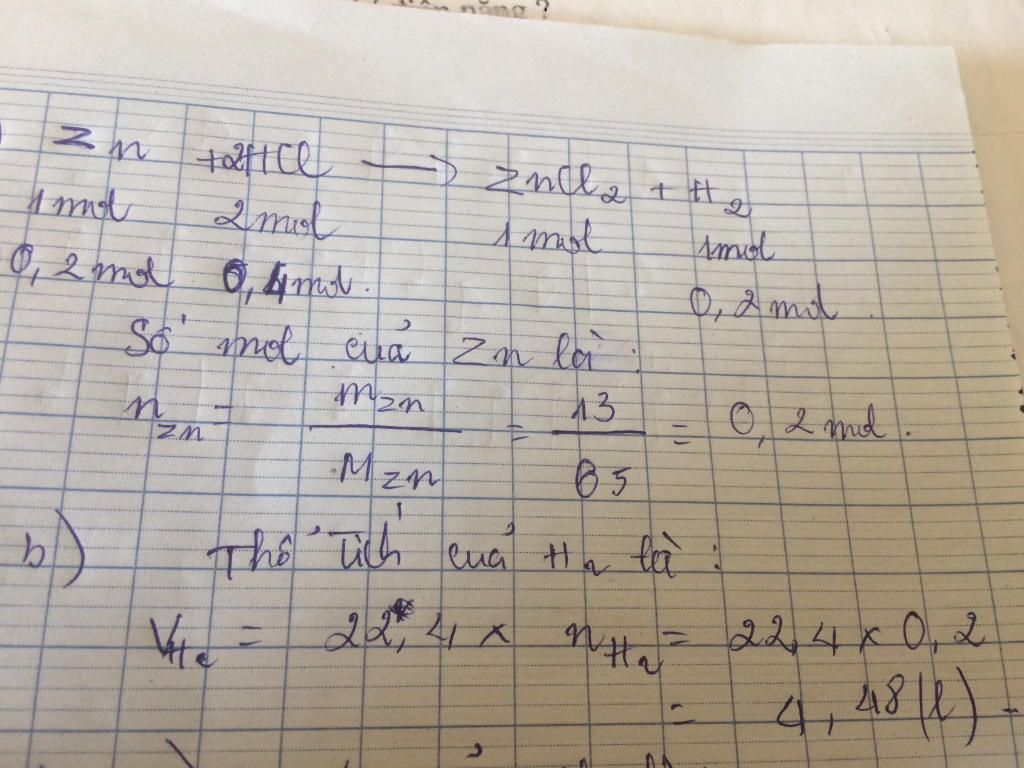 năng ?
) Zn + 2HCl ⟶ ZnCl₂ + H₂
1 mol 2 mol 1 mol 1 mol
0,2 mol 0,4 mol. 0,2 mol.
Số mol của Zn là :
n_Zn = m_Zn / M_Zn = 13 / 65 = 0,2 mol.
b) Thể Tích của H₂ là :
V_H₂ = 22,4 x n_H₂ = 22,4 x 0,2
= 4,48 (l) -